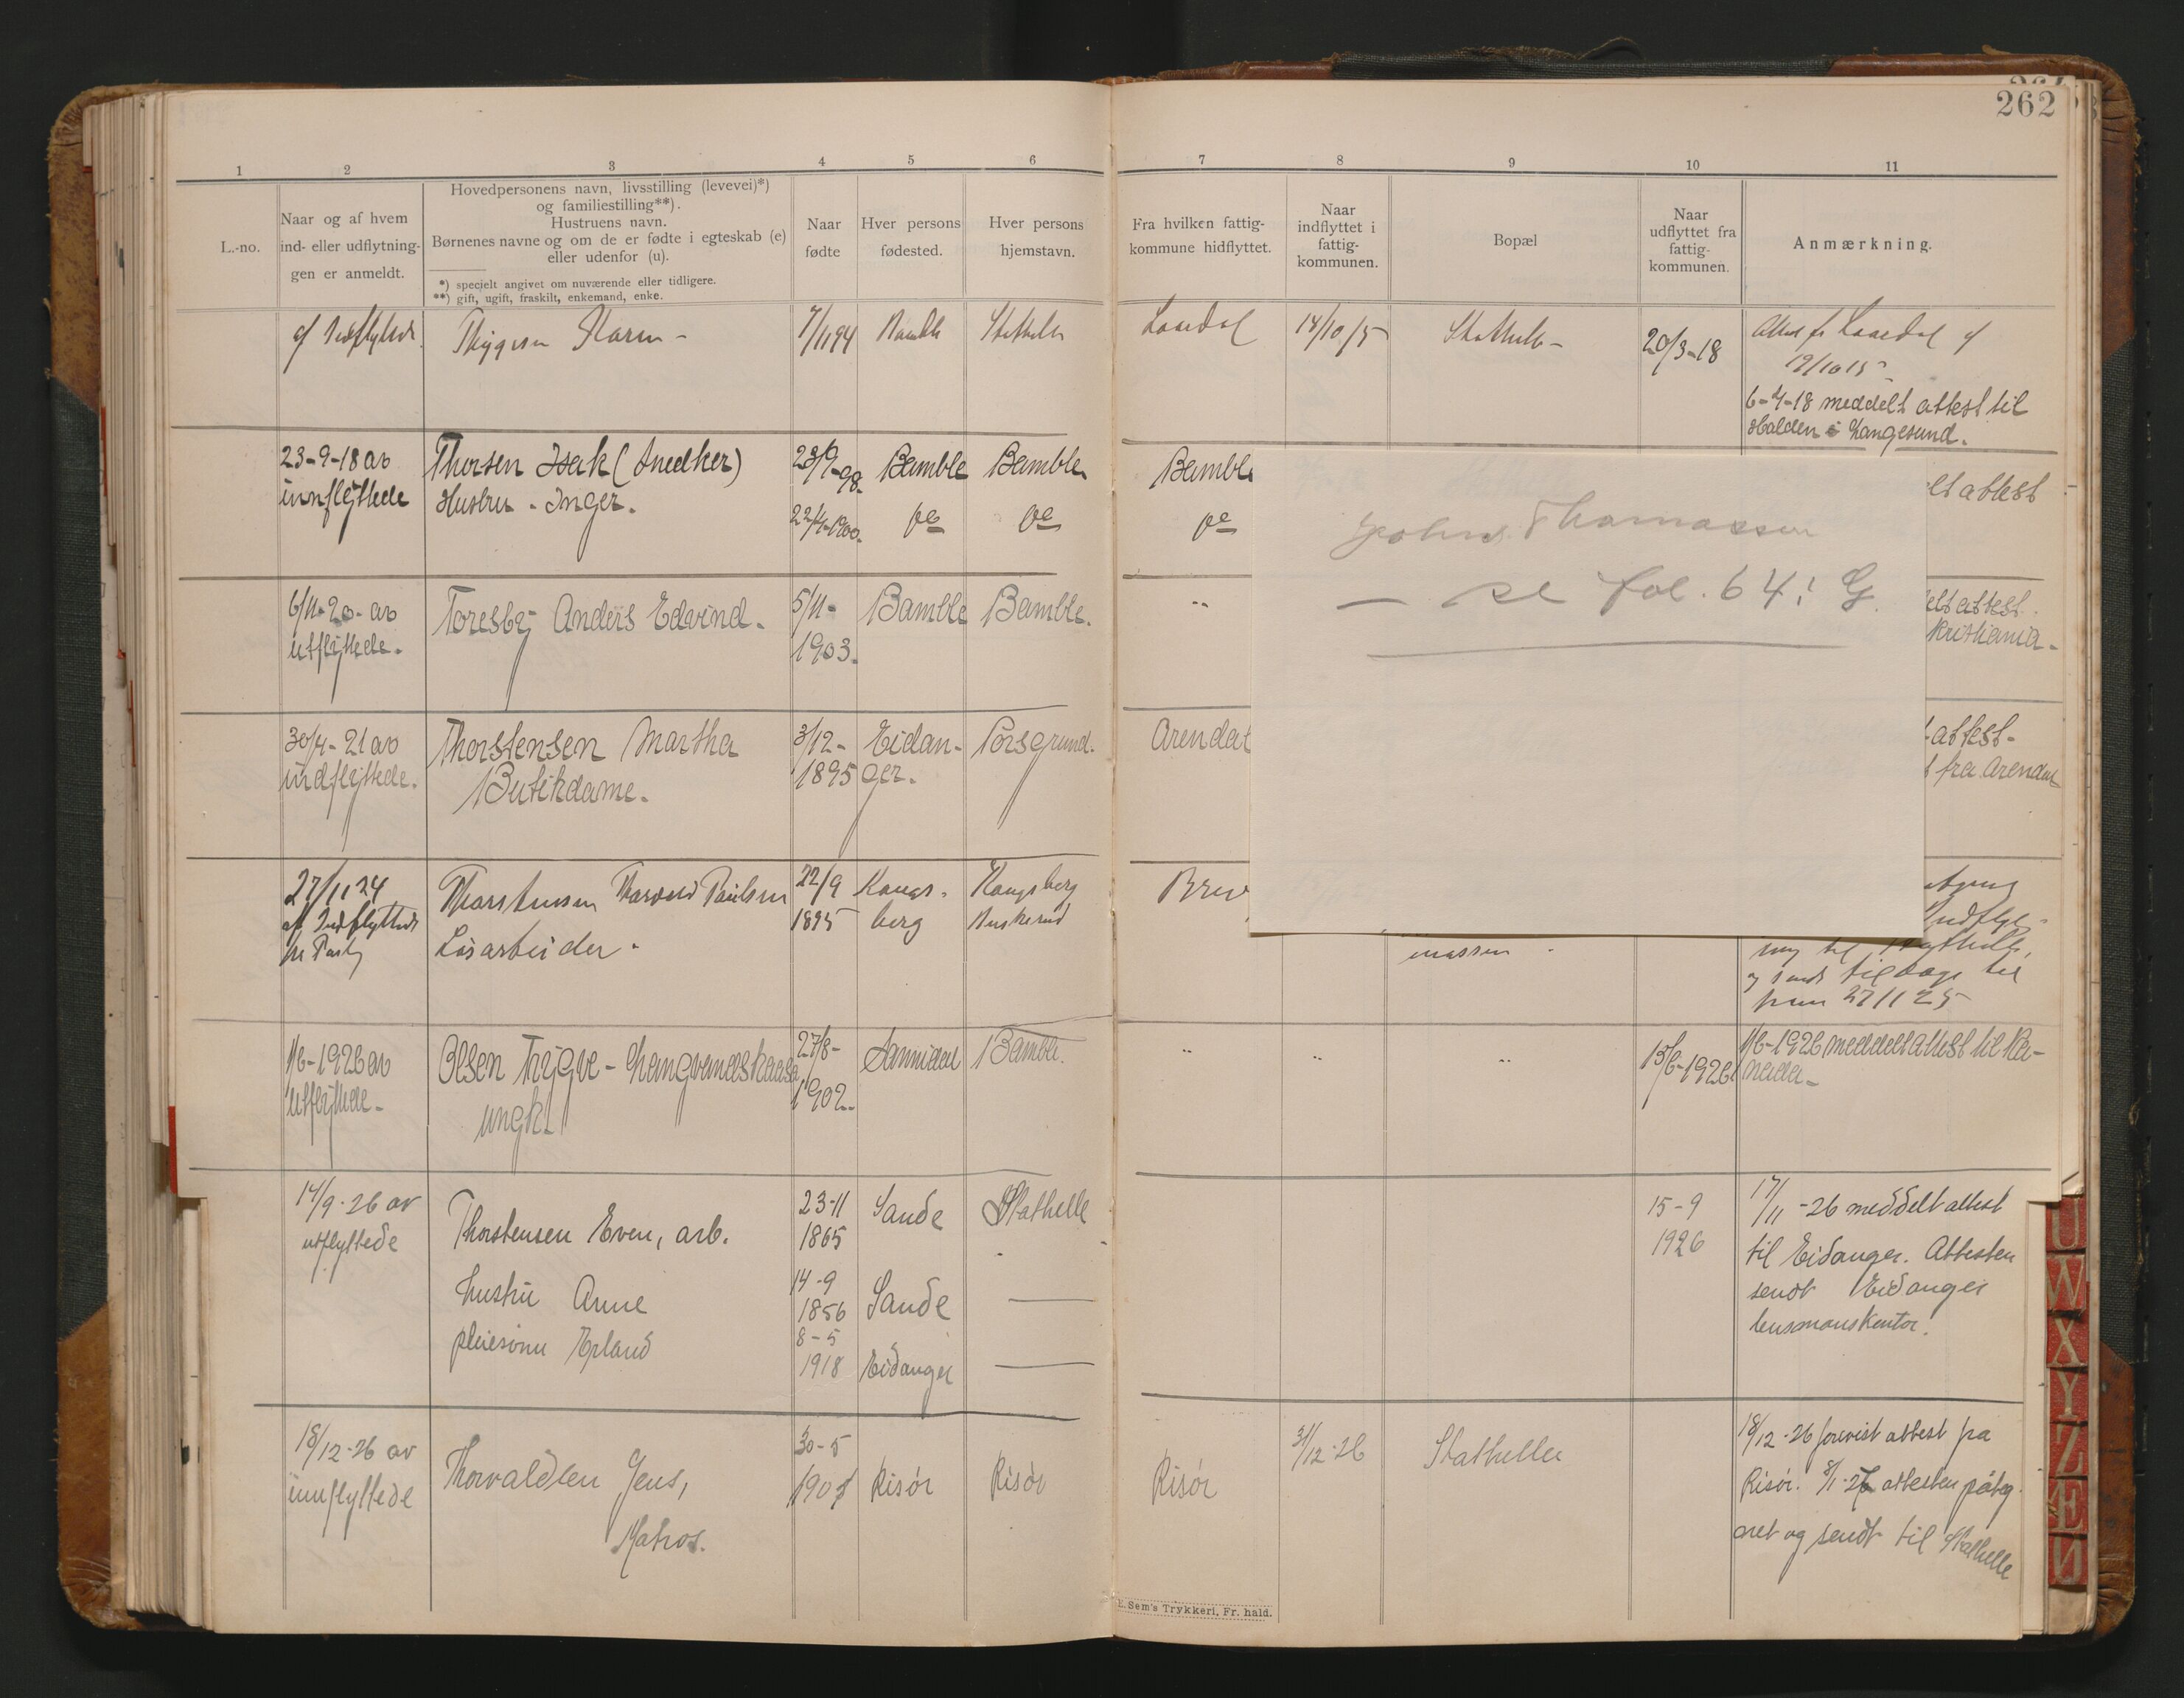 262
1 2 3 4 5 6 7 8 9 10 11
L.-no.
Naar og af hvem
ind- eller udflytning-
gen er anmeldt.
Hovedpersonens navn, livsstilling (levevei)*)
og familiestilling**).
Hustruens navn.
Børnenes navne og om de er fødte i egteskab (e)
eller udenfor (u).
*) specielt angivet om nuværende eller tidligere.
**) gift, ugift, fraskilt, enkemand, enke.
Naar
fødte
Hver persons
fødested.
Hver persons
hjemstavn.
Fra hvilken fattig-
kommune hidflyttet.
Naar
indflyttet i
fattig-
kommunen.
Bopæl
Naar
udflyttet fra
fattig-
kommunen.
Anmærkning.
Karen -
Bamble
Stathelle
14/10/15
Stathelle -
20/3-18
19/10 15
6-4-18 meddelt attest til
Halden i Langesund.
23-9-18 av
innflyttede
Thorsen Isak (Snedker)
Hustru - Inger.
22/4-1900.
Bamble
do
Bamble
do
Bamble
do
elt attest
6/11-20- av
utflyttede.
Toresby Anders Edvind.
5/11-
1903.
Bamble
Bamble.
"
elt attest.
Kristiania.
30/4-21 av
indflyttede.
Thorstensen Martha
Butikdame.
3/12-
1895
Eidan-
ger.
Porsgrund.
Arendal
attest-
fra Arendal
Thomassen
— se fol. 64 i G.
27/11 24
af Indflyttede
Paulsen
Løsarbeider.
22/9
1895
Kongs-
berg
Kongsberg
Buskerud
Brev
massen
til Stathelle,
tilbage til
27/1 25
1/6-1926 av
utflyttede-
Olsen Trygve -
ungk.
27/8-
1902.
Sannidal
Bamble.
"
"
"
15/6-1926
1/6-1926 meddelt attest til Ka-
nada-
14/9-26 av
utflyttede
Thorstensen Even, arb.
hustru Anne
pleiesønn Erland
23-11
1865
14-9
1856
8-5
1918
Sande
Sande
Eidanger
Stathelle
15-9
1926
17/11-26 meddelt attest
til Eidanger. Attesten
sendt Eidanger
lensmanskontor.
18/12-26 av
innflyttede
Thorvaldsen Jens,
Matros.
30-5
Risør
Risør
Risør
31/12-26
Stathelle
18/12-26 forevist attest fra
Risør. 8/1-27 attesten påteg-
net og sendt til Stathelle
E. Sem's Trykkeri, Fr. hald.
U
W
X
Y
Z
Æ